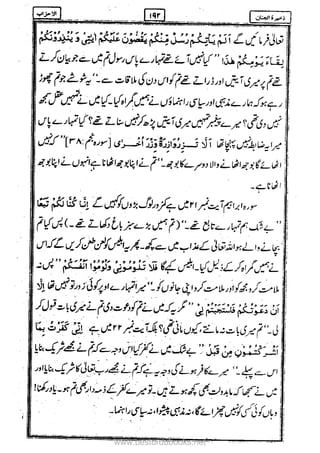 ذخیرۃ الجنان ۱۹۲ الاحزاب
تعالیٰ فرمائیں گے اَلَمْ یَاْتِکُمْ رُسُلٌ مِّنْکُمْ یَقُصُّوْنَ عَلَیْکُمْ اٰیٰتِیْ وَ یُنْذِرُوْنَکُمْ
لِقَآءَ یَوْمِکُمْ هٰذَا "کیا نہیں آئے تھے تمہارے پاس رسول تم میں سے جو بیان کرتے
تھے تم پر میری آیتیں اور ڈراتے تھے تم کو اس دن کی ملاقات سے۔" یہ شوشے جو تم چھوڑ
رہے ہو کہ ہمارے مذہبی اور سیاسی راہنماؤں نے ہمیں گمراہ کیا۔ کیا میں نے تمہیں عقل سمجھ
نہیں دی تھی؟ میرے پیغمبر تمہیں میری آیتیں پڑھ کر نہیں سناتے تھے؟ کیا تمہارے پاس
میرا یہ ضابطہ نہیں پہنچا تھا اَلَّا تَزِرُ وَازِرَةٌ وِّزْرَ اُخْرٰی [سورہ نجم: ۳۸] "کہ نہیں
اٹھائے گا بوجھ اٹھانے والا دوسرے کا بوجھ۔" تم نے اپنا بوجھ اٹھانا ہے انہوں نے اپنا بوجھ
اٹھانا ہے۔
سورہ ابراہیم آیت نمبر ۲۱ میں ہے کمزور لوگ بڑوں کو کہیں گے اِنَّا کُنَّا لَکُمْ تَبَعًا
"بے شک ہم تمہارے تابع تھے۔" (تم ہمیں بڑے سبز باغ دکھاتے تھے۔) پس کیا تم
بچانے والے ہو اللہ تعالیٰ کے عذاب میں سے کچھ۔ پھر یہ ابلیس کو لعن طعن کریں گے کہ اس
نے ہمیں گمراہ کر کے ذلیل کیا۔ ابلیس کہے گا فَلَا تَلُوْمُوْنِیْ وَلُوْمُوْا اَنْفُسَکُمْ "پس نہ
ملامت کرو مجھ کو اور ملامت کرو اپنی جانوں کو۔" میرا تمہارے اوپر کوئی زور تو نہیں تھا اِلَّا
اَنْ دَعَوْتُکُمْ فَاسْتَجَبْتُمْ لِیْ "مگر یہ کہ میں نے تم کو دعوت دی تم نے میری بات قبول کر
لی۔" تم میری بات نہ مانتے، کیوں مانی تھی؟ بلکہ آیت نمبر ۲۲ میں ہے اِنِّیْ کَفَرْتُ بِمَا
اَشْرَکْتُمُوْنِ مِنْ قَبْلُ "بے شک میں نے کفر کیا اس وجہ سے کہ تم نے مجھے شریک بنایا
اس سے پہلے۔" میرے کافر ہونے کی وجہ ہی یہ ہے کہ تم نے مجھے رب تعالیٰ کا شریک بنایا اور
میں نے سمجھا کہ ما بدولت بھی کچھ ہوتے ہیں۔ تو میرے کفر کے ذمہ دار بھی تم ہو۔ یاد رکھنا!
وہاں کوئی کسی کو نہیں چھڑائے گا، نہ مذہبی پیشوا، نہ سیاسی راہنما۔